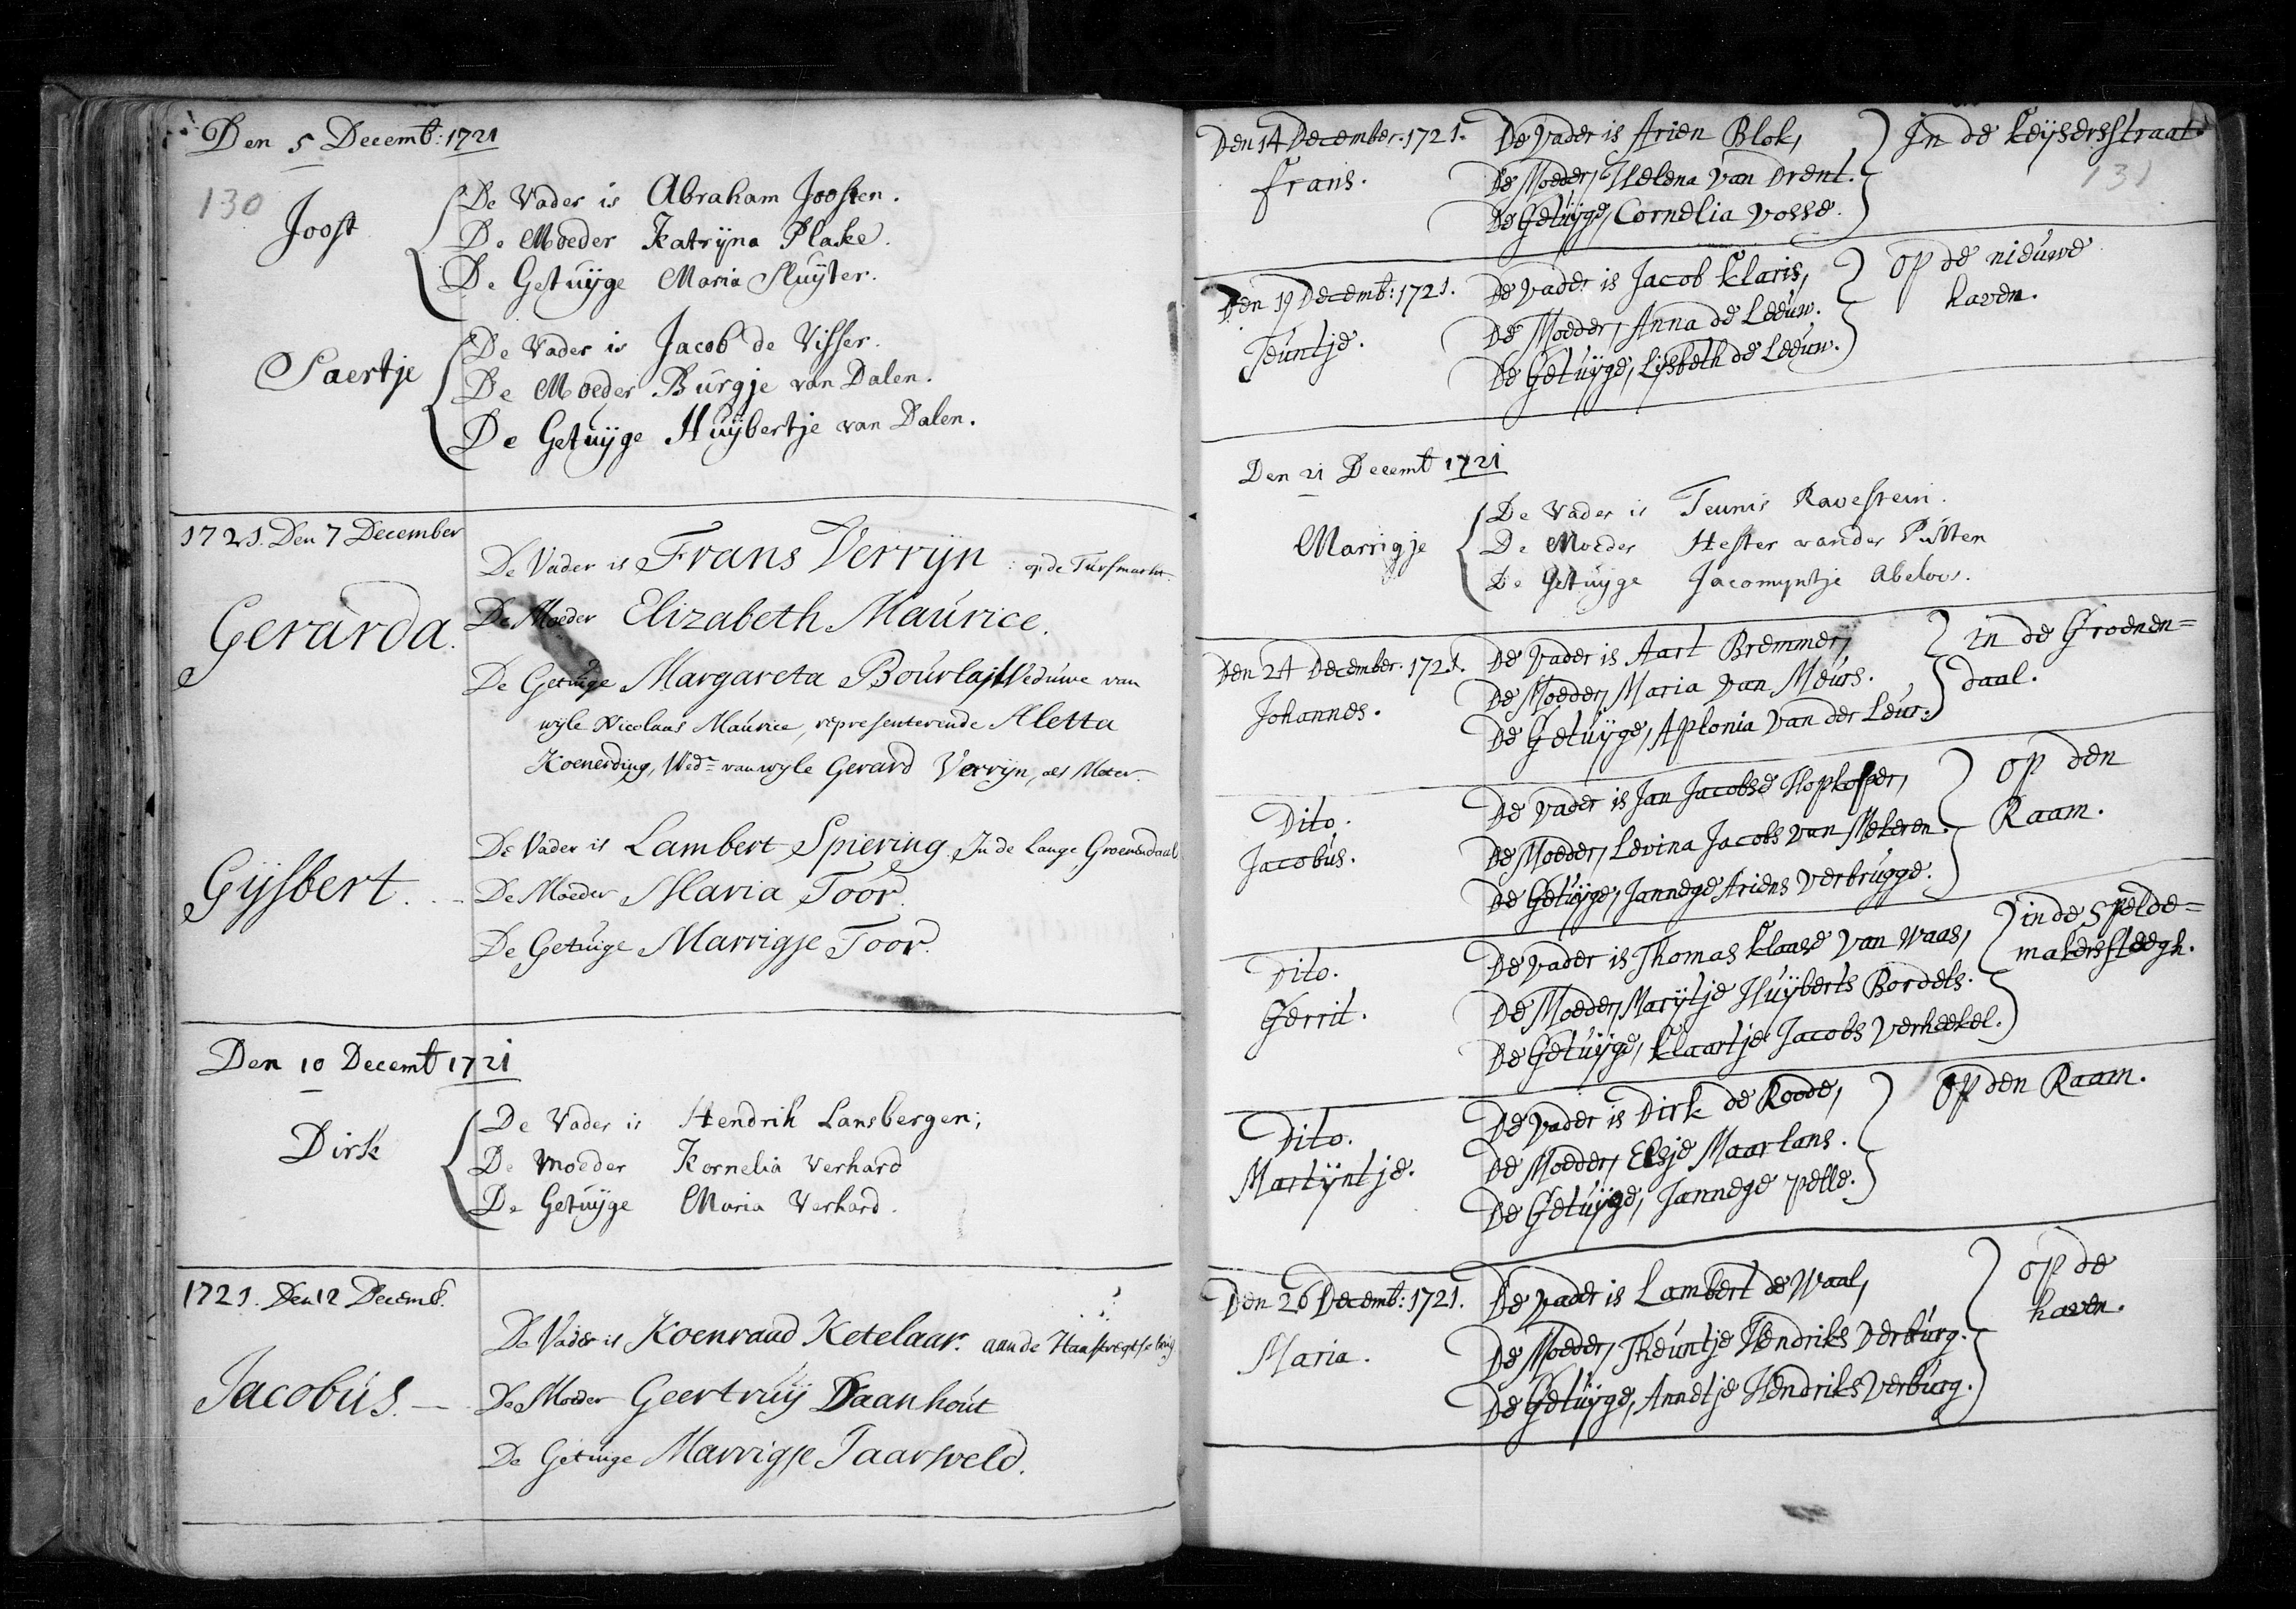 Den 5 Decemb: 1721
130
Joost
De Vader is Abraham Joosten.
De Moeder Katrijna Plake.
De Getuijge Maria Sluijter.
Saertje
De Vader is Jacob de Visser.
De Moeder Burgje van Dalen.
De Getuijge Huijbertje van Dalen.
1721. Den 7 December
De Vader is Frans Verrijn : op de Turfmarkt.
Gerarda.
De Moeder Elizabeth Maurice.
De Getuige Margareta Bourlajt Weduwe van
wijle Nicolaas Maurice, representerende Aletta
Koenerding, Wede van wijle Gerard Verrijn, als Meter.
De Vader is Lambert Spiering. In de Lange Groenendaal
Gijsbert.
De Moeder Maria Toor.
De Getuige Marrigje Toor.
Den 10 Decemb 1721
Dirk
De Vader is Hendrik Lansbergen;
De Moeder Kornelia Verhard
De Getuijge Maria Verhard.
1721. Den 12 Decemb.
De Vader is Koenraad Ketelaar. aan de Haastregtse brug
Jacobus.
De Moeder Geertruij Daanhout
De Getuige Marrigje Jaarsveld.
Den 14 December. 1721. De Vader is Arien Blok, In de keijsersstraat
131
Frans. De Moeder, Helena van Drent.
De Getuijge, Cornelia Vosse.
Den 19 Decemb: 1721. De Vader is Jacob Klaris, op de nieuwe
haven.
Teuntje. De Moeder, Anna de Leeuw.
De Getuijge, Lijsbeth de Leeuw.
Den 21 Decemb 1721
Marrigje
De Vader is Teunis Ravestein.
De Moeder Hester vander Putten
De Getuijge Jacomijntje Abeloos.
Den 24 December. 1721. De Vader is Aart Bremmer, in de Groenen=
daal.
Johannes. De Moeder, Maria van Meurs.
De Getuijge, Aplonia van der Leur.
Dito. De Vader is Jan Jacobse Hopkoper, op den
Raam.
Jacobus. De Moeder, Levina Jacobs van Meteren.
De Getuijge, Jannege Ariens Verbrugge.
Dito. De Vader is Thomas Klaase van Waas, in de Spelde=
makerssteegh.
Gerrit. De Moeder, Marijtje Huijberts Bordels.
De Getuijge, Klaartje Jacobs Verheekel.
Dito. De Vader is Dirk de Roode, op den Raam.
Martijntje. De Moeder, Elsje Maarlans.
De Getuijge, Jannege Pelle.
Den 26 Decemb: 1721. De Vader is Lambert de Waal, op de
haven.
Maria. De Moeder, Theuntje Hendriks Verburg.
De Getuijge, Annetje Hendriks Verburg.